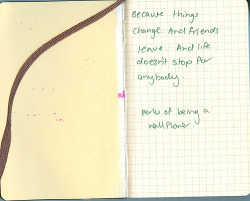 Because things
change. And friends
leave. And life
doesn't stop for
anybody.
perks of being a
wallflower.